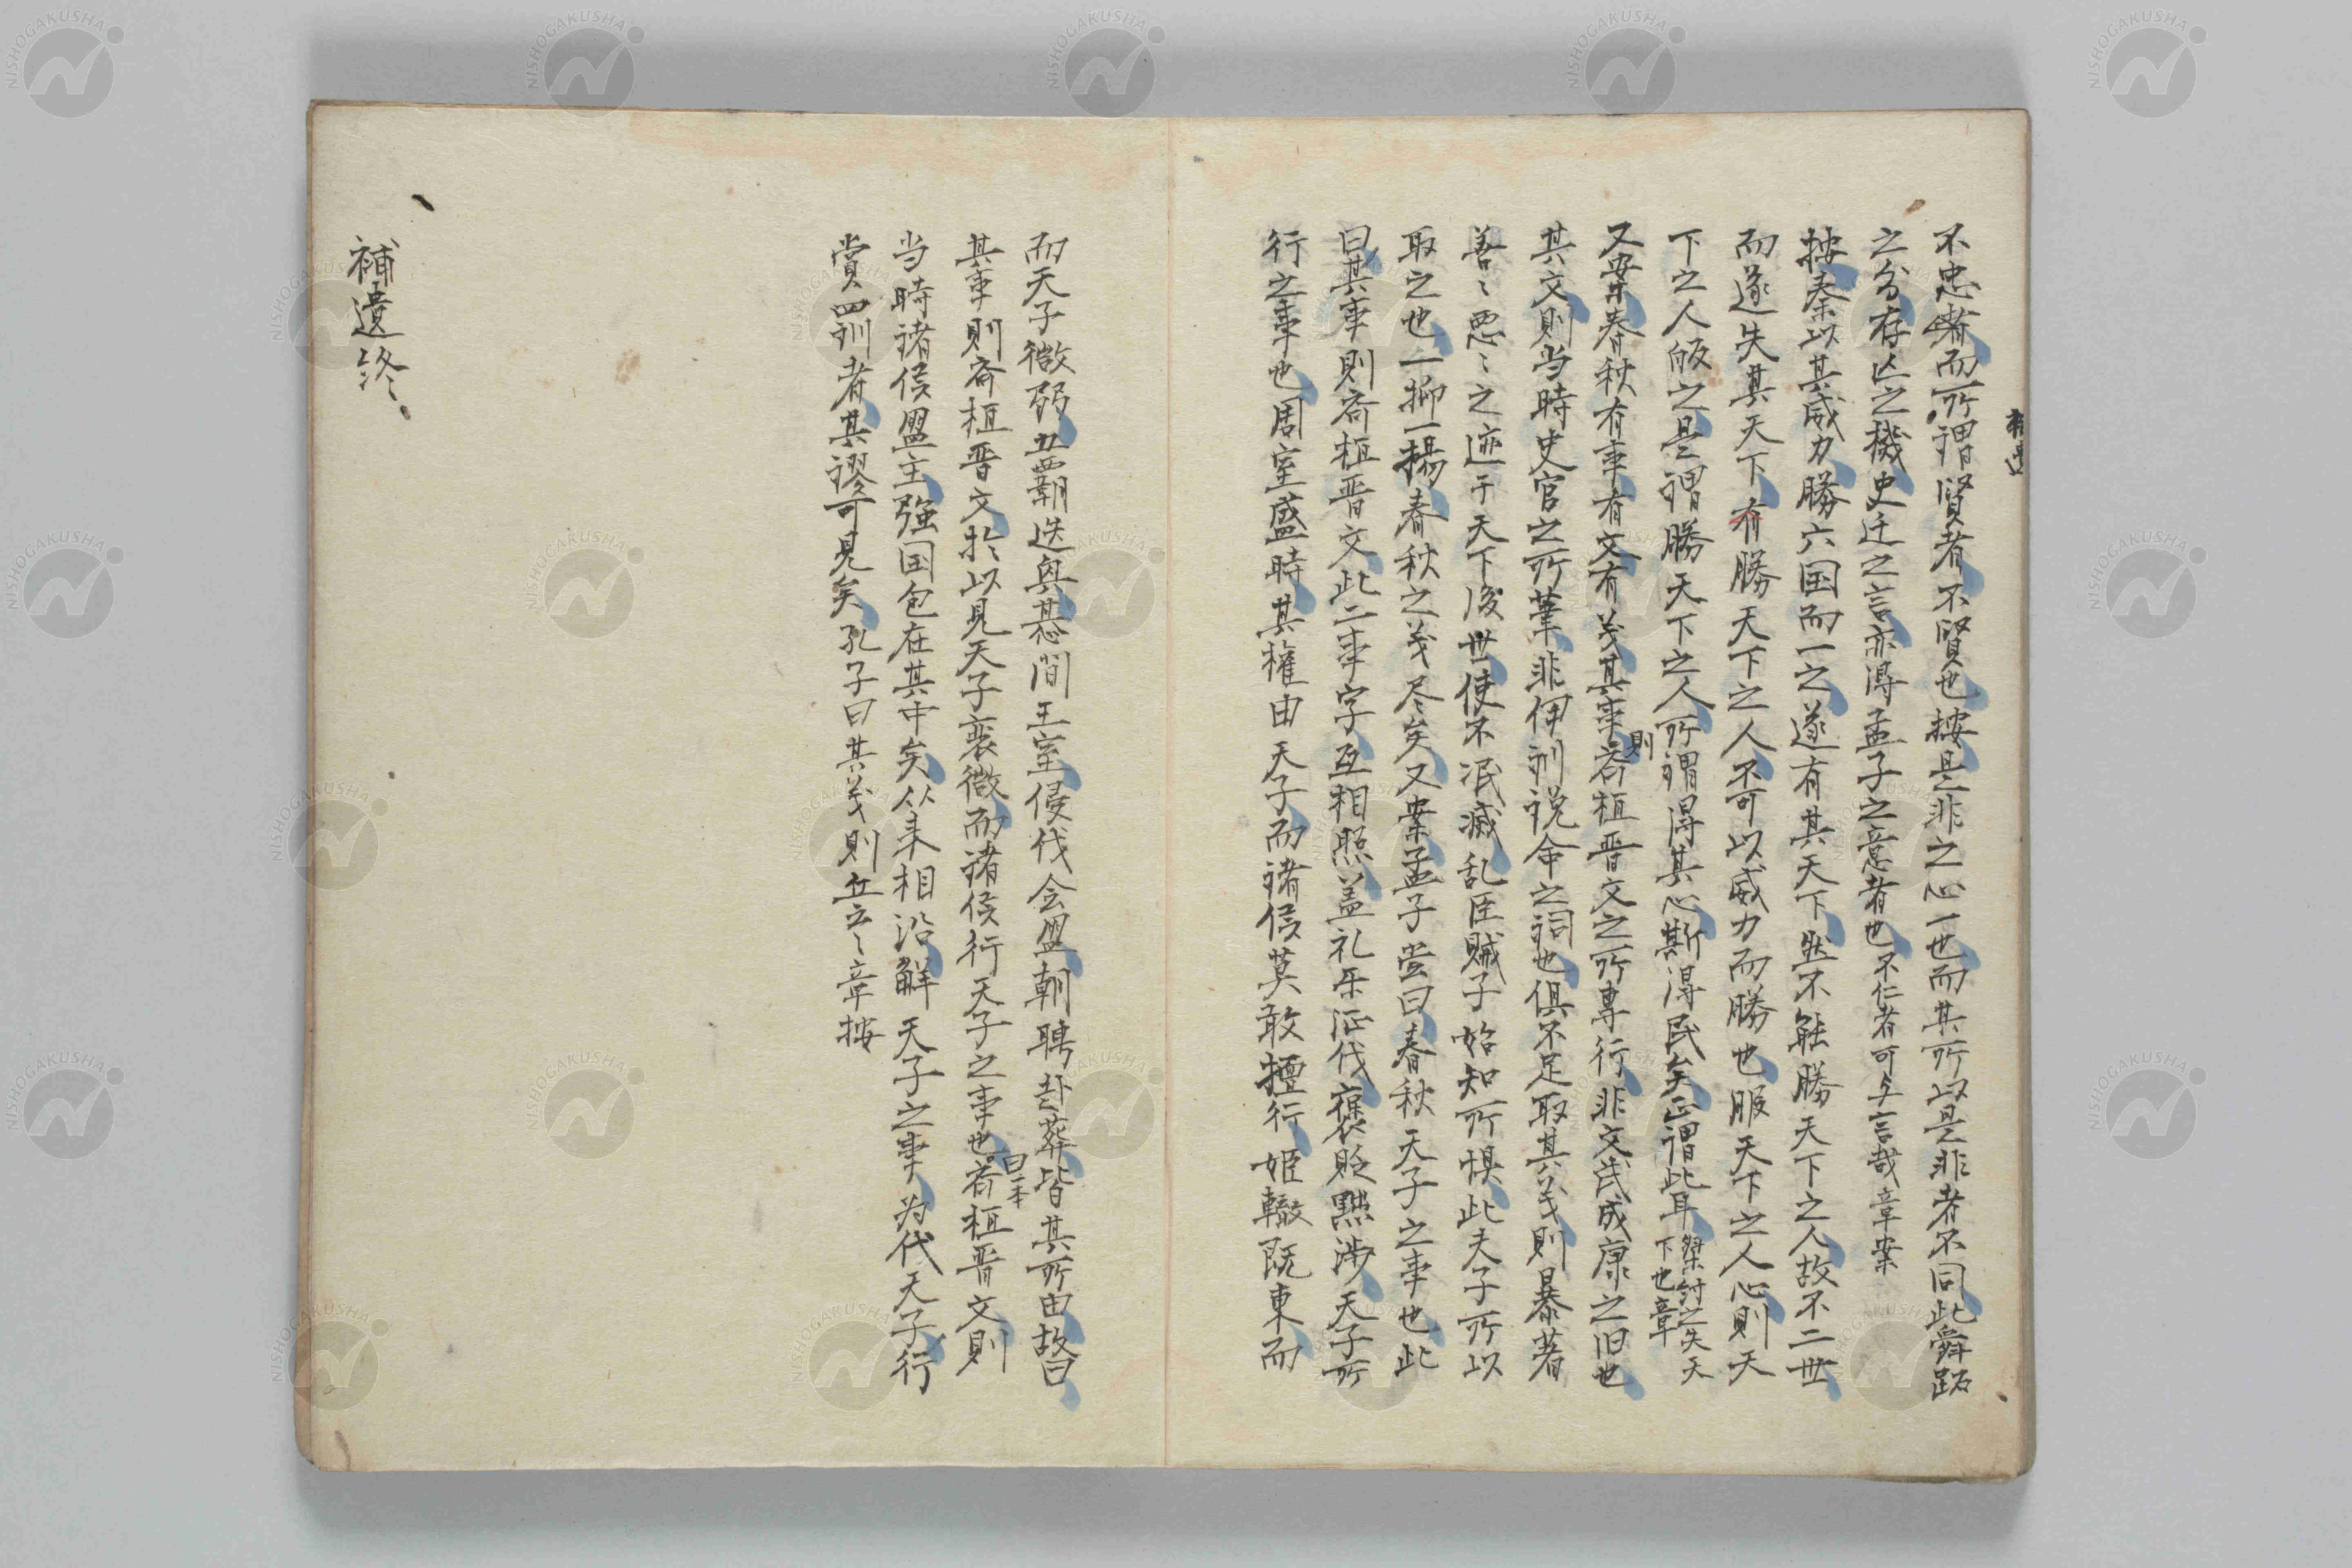 不忠者而所謂賢者不賢也按是非之心一也而其所以是非者不同此舜跖
之分存亡之機史迁之言亦得孟子之意者也不仁者可与言哉章案
按秦以其威力勝六国而一之遂有其天下然不能勝天下之人故不二世
而遂失其天下有勝天下之人不可以威力而勝也服天下之人心則天
下之人皈之是謂勝天下之人所謂得其心斯得民矣正謂此耳桀紂之失天下也章
又案春秋有事有文有義其事則斉桓晋文之所専行非文武成康之旧也
其文則当時史官之所筆非伊訓説命之詞也俱不足取其義則暴著
善〻悪〻之迹于天下後世使不泯滅乱臣賊子始知所惧此夫子所以
取之也一抑一揚春秋之義尽矣又案孟子嘗曰春秋天子之事也此
曰其事則斉桓晋文此二事字互相照盖礼楽征伐褒貶黜渉天子所
行之事也周室盛時其権由天子而諸侯莫敢擅行姫轍既東而
而天子微弱五覇迭興其間王室侵伐会盟朝聘赴葬皆其所由故曰
其事則斉桓晋文於以見天子衰微而諸侯行天子之事也曰一本斉桓晋文則
当時諸侯盟主強国包在其中矣从来相沿解天子之事為代天子行
賞罰者其謬可見矣孔子曰其義則丘云〻章按
補遺終
NISHOGAKUSHA